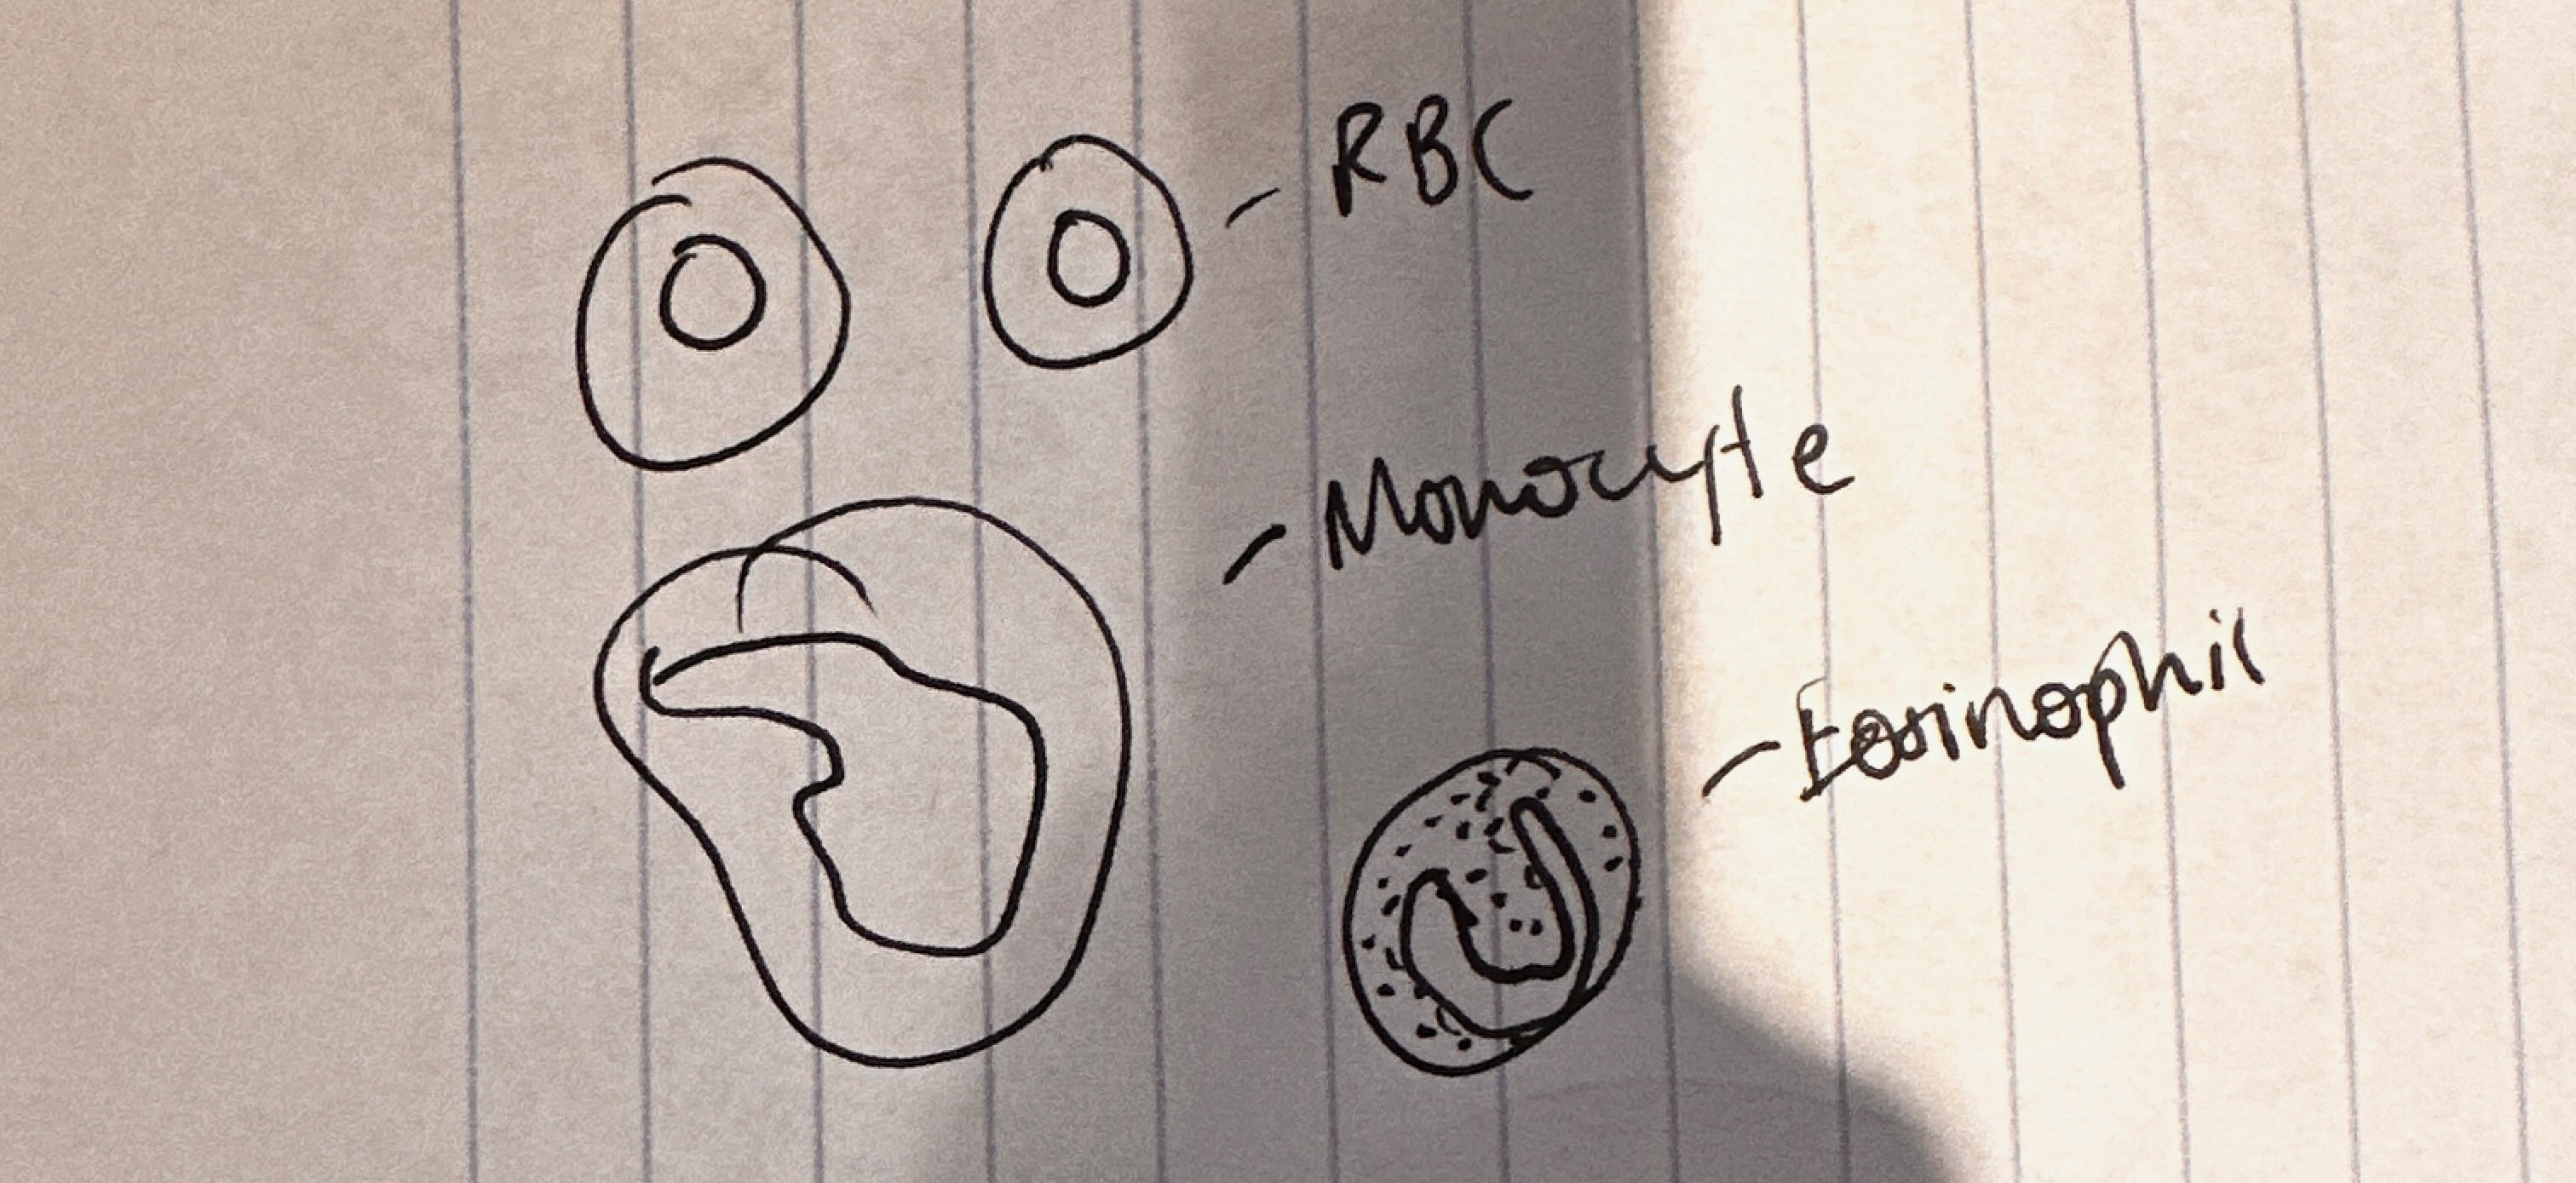 - RBC
- Monocyte
- Eosinophil